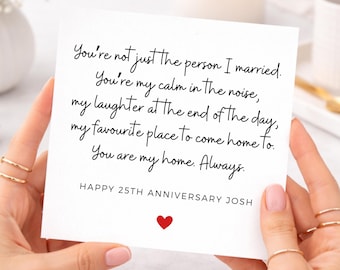 You're not just the person I married.
You're my calm in the noise,
my laughter at the end of the day,
my favourite place to come home to.
You are my home. Always.
HAPPY 25TH ANNIVERSARY JOSH